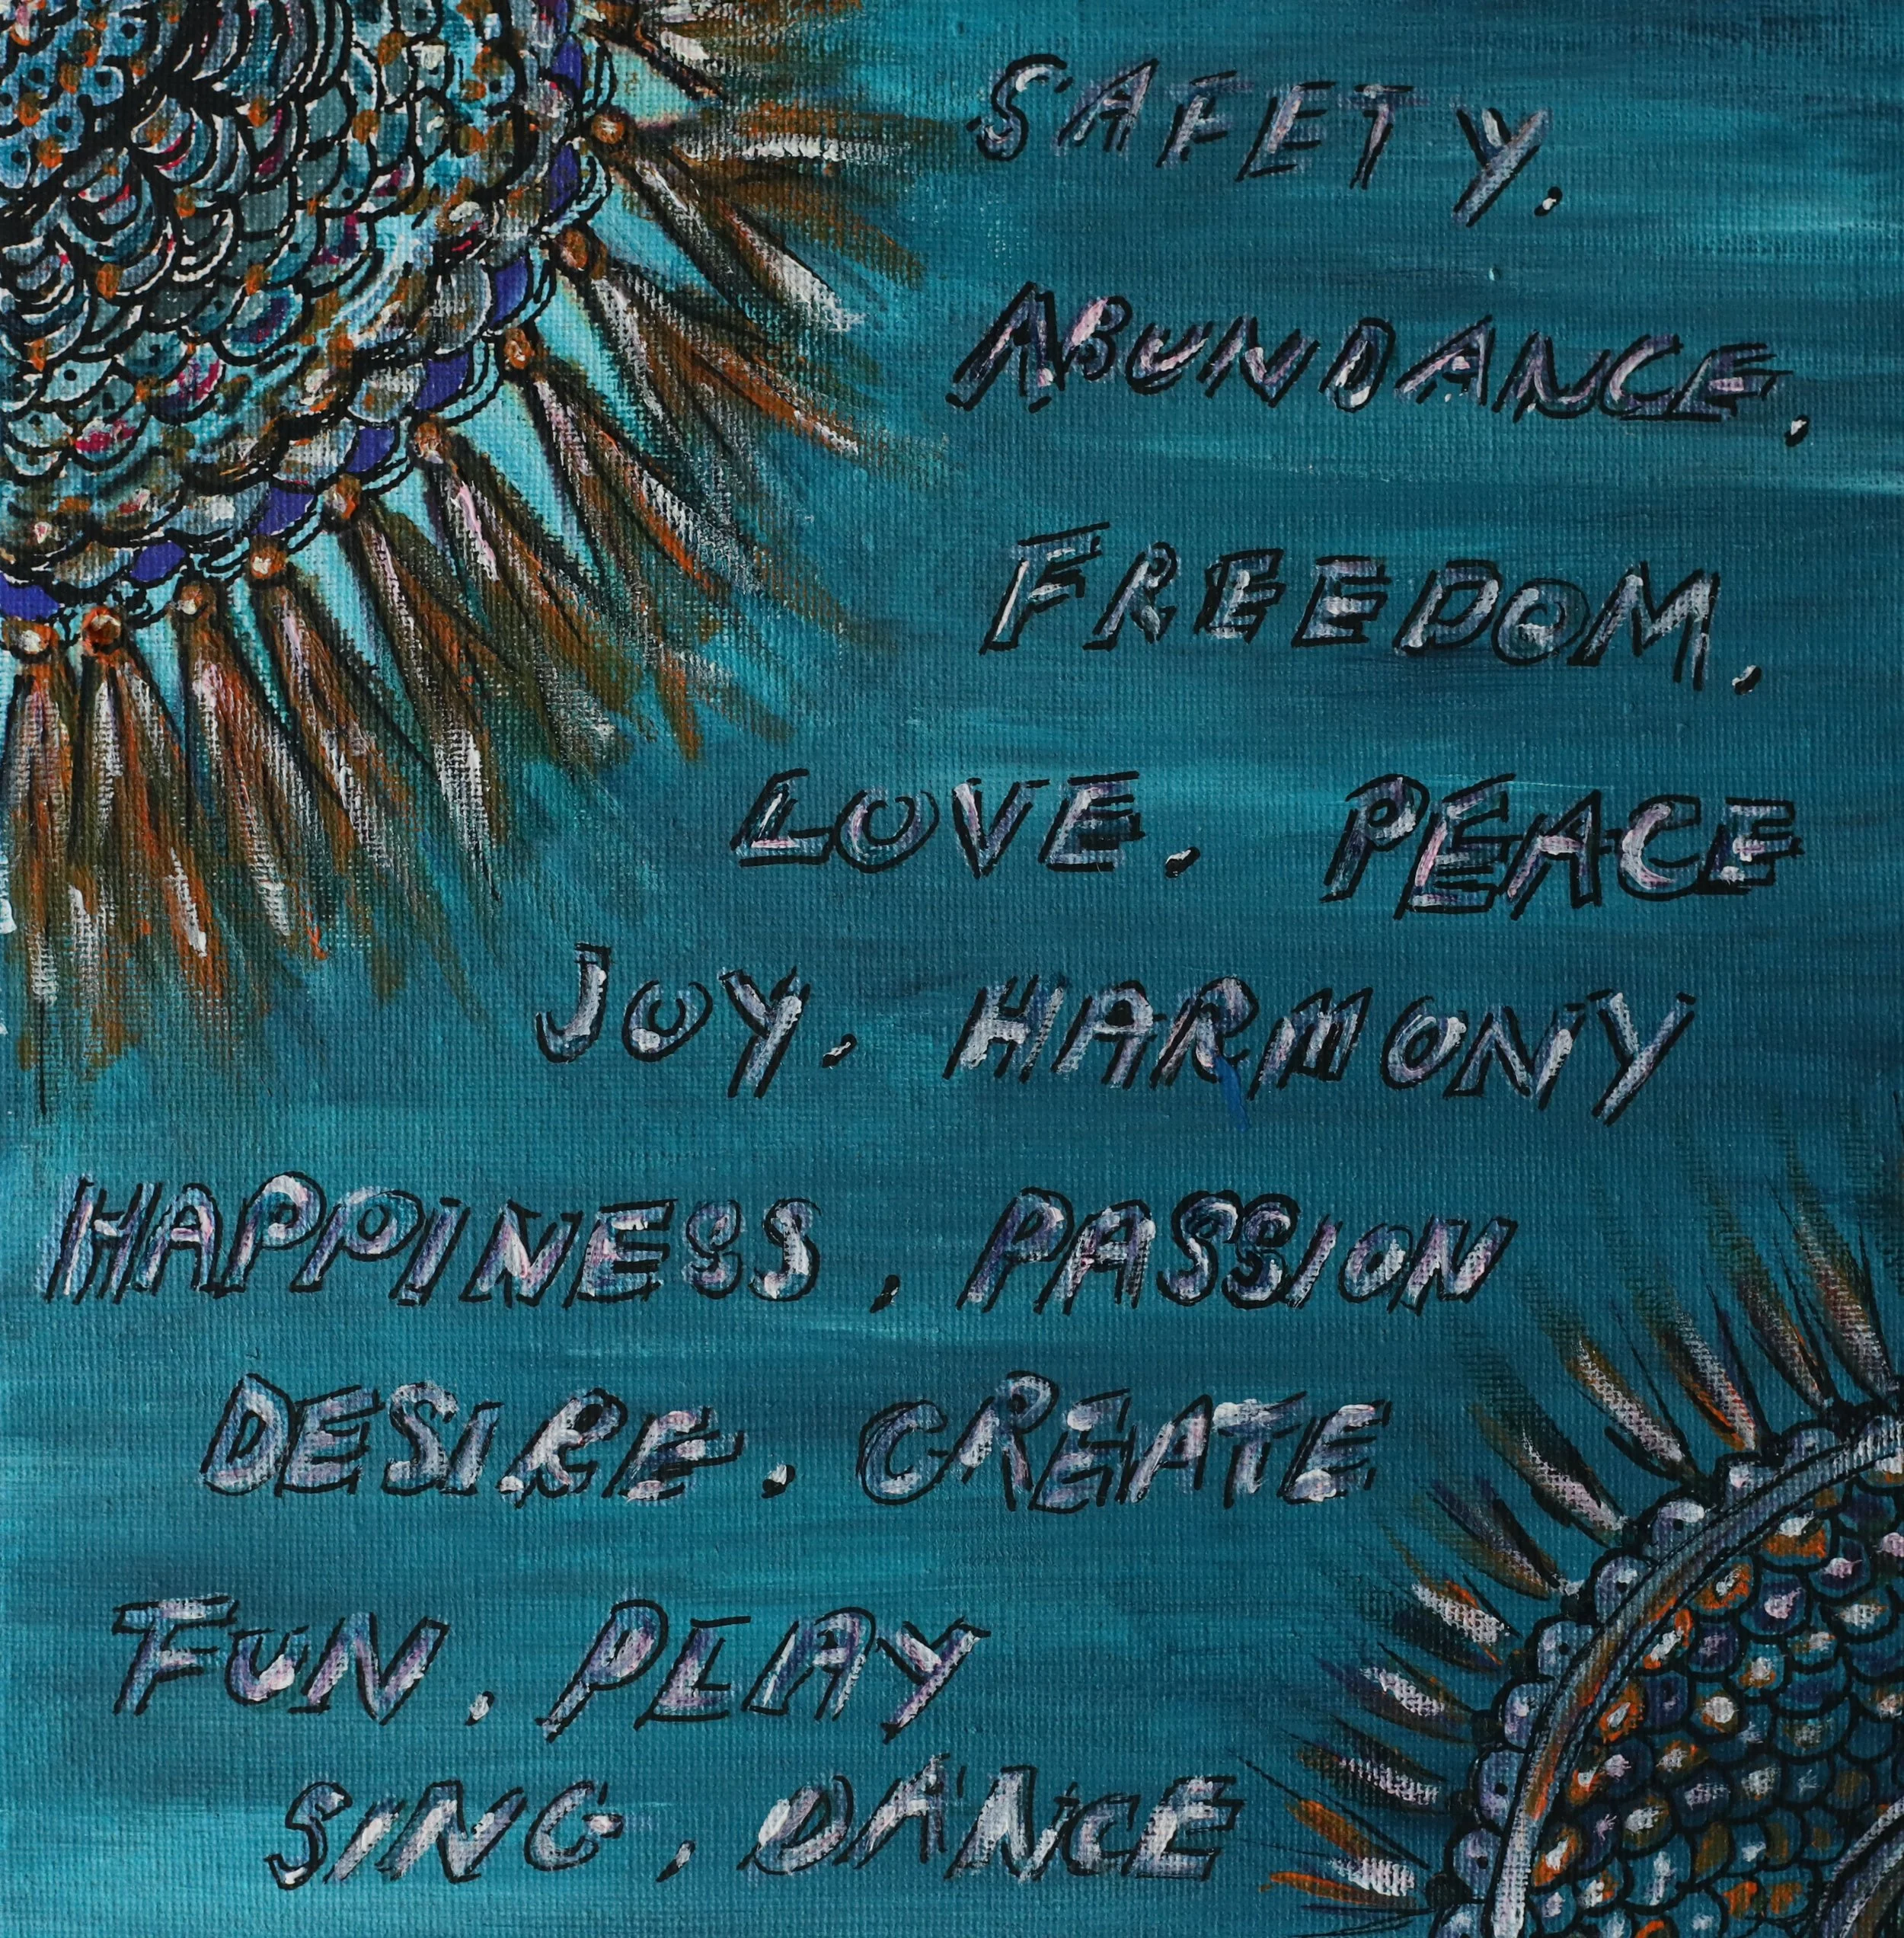 SAFETY.
ABUNDANCE.
FREEDOM.
LOVE. PEACE
JOY. HARMONY
HAPPINESS. PASSION
DESIRE. CREATE
FUN. PLAY
SING. DANCE